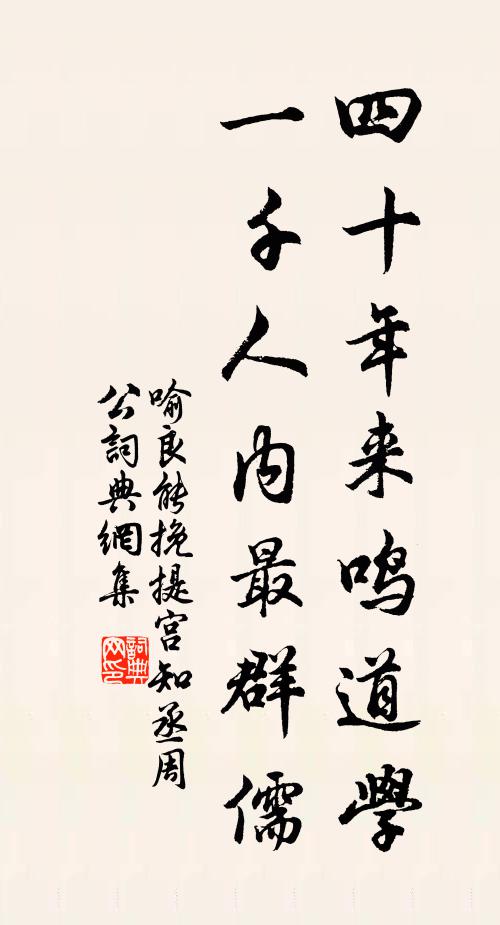 四十年来鸣道學
一千人内最群儒
喻良能挽提宫知丞周
公詞典網集
詞典网印